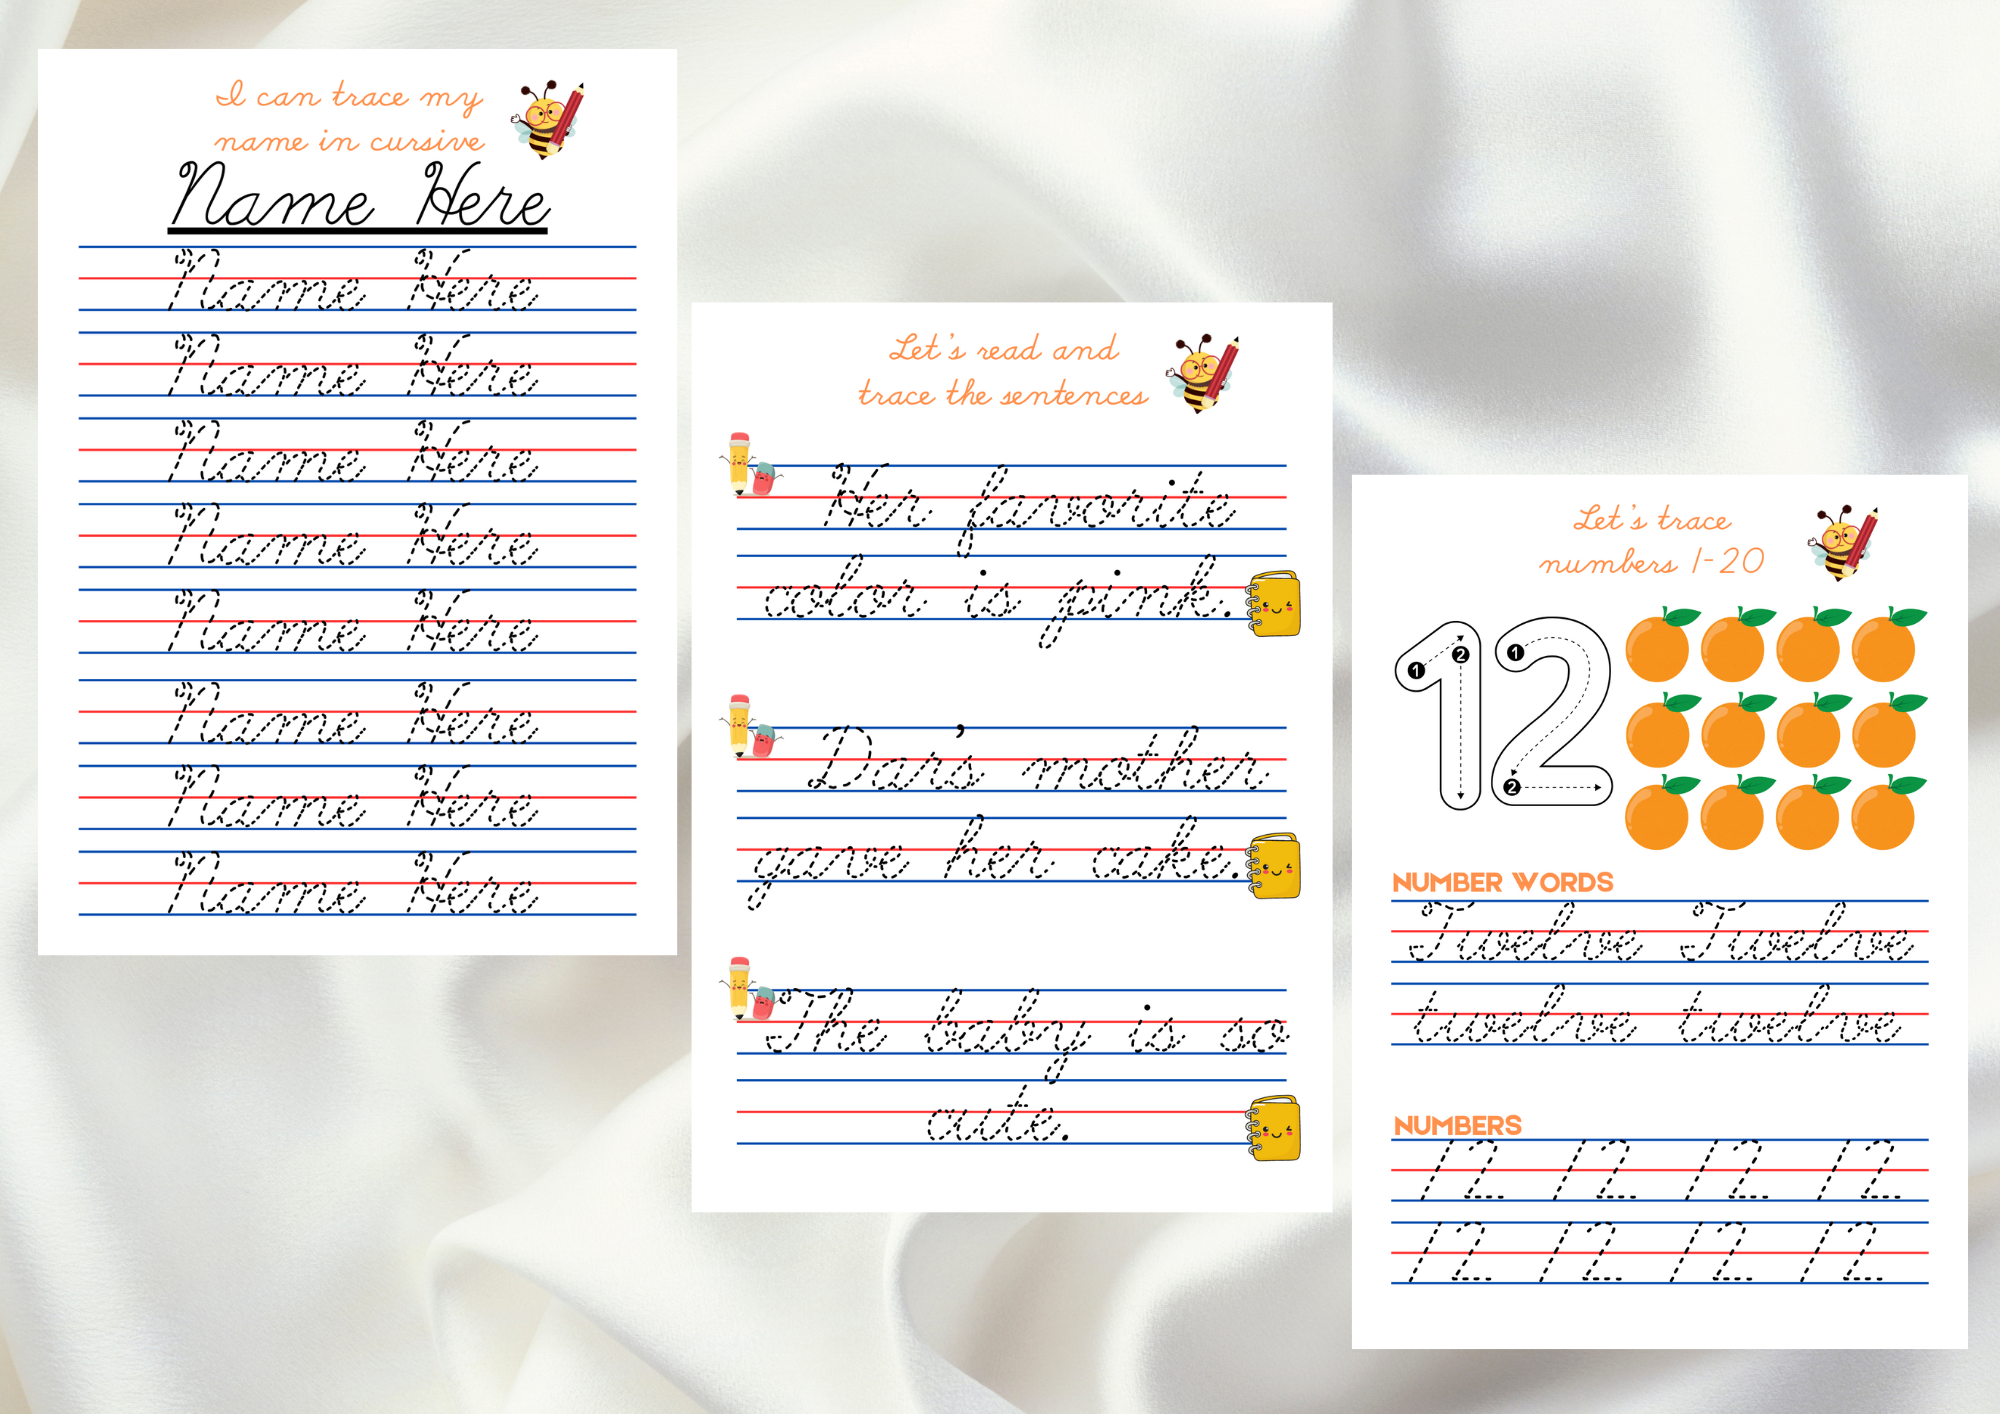 I can trace my
name in cursive
Name Here
Name Here
Name Here
Name Here
Name Here
Name Here
Name Here
Name Here
Name Here
Let's read and
trace the sentences
Her favorite
color is pink.
Dan's mother
gave her cake.
The baby is so
cute.
Let's trace
numbers 1-20
1 2 1
2
12
NUMBER WORDS
Twelve Twelve
twelve twelve
NUMBERS
12 12 12 12
12 12 12 12